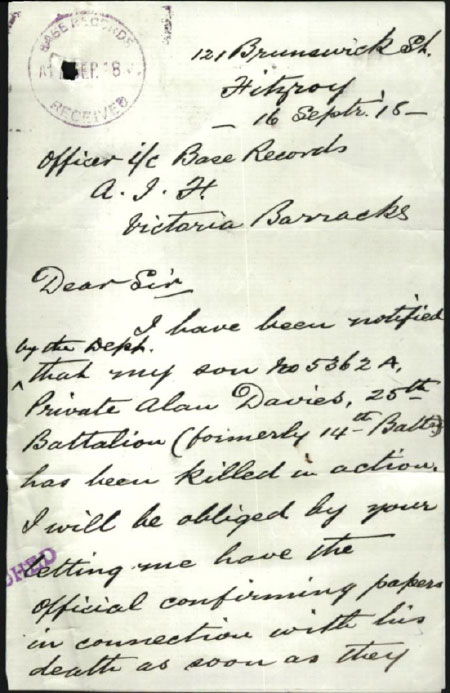 BASE RECORDS
SEP. 18
RECEIVED
121 Brunswick St.
Fitzroy
— 16 Septr. '18 —
Officer i/c Base Records
A. I. F.
Victoria Barracks
Dear Sir
I have been notified
by the Deph.
that my son No 5362A,
Private Alan Davies, 25th
Battalion (formerly 14th Battn)
has been killed in action.
I will be obliged by your
letting me have the
official confirming papers
in connection with his
death as soon as they